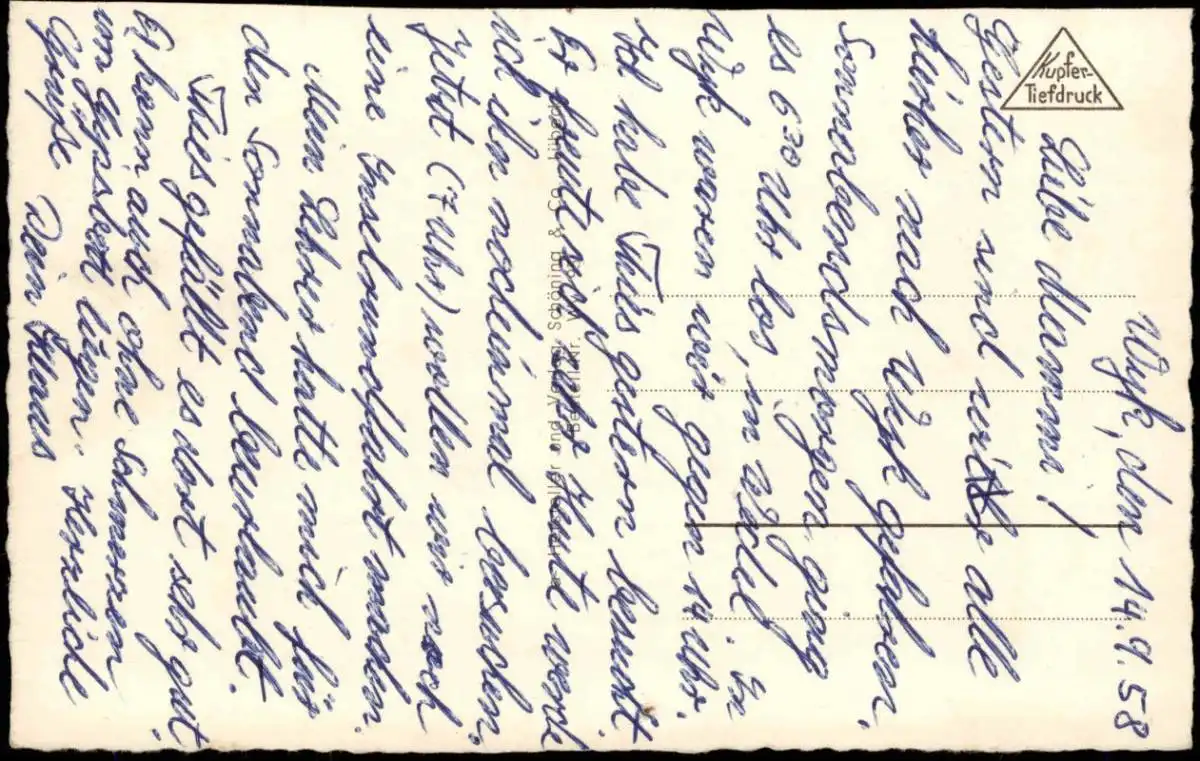 Kupfer-
Tiefdruck
Wyk, den 14.9.58
Liebe Mammi!
Gestern sind wir alle
hierher nach Wyk gefahren.
Sonnabendsmorgen ging
es 6³⁰ Uhr los, m. In
Wyk waren wir gegen 14 Uhr.
Ich habe Thies gestern besucht.
Er freut sich sehr. Heut werde
ich ihn nocheinmal besuchen.
Jetzt (7 Uhr) wollen wir noch
eine Inselrundfahrt machen.
Mein Lehrer hatte mich für
den Sonnabend beurlaubt.
Thies gefällt es dort sehr gut.
Er kann auch ohne Schmerzen
im Gipsbett liegen. Herzliche
Grüße Dein Klaus
Schöning & Co., Lübeck